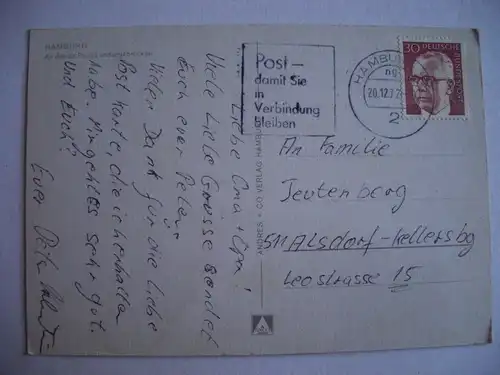 HAMBURG
Liebe Oma + Opa!
Viele liebe Grüsse sendet
Euch euer Peter.
Vielen Dank für die liebe
Postkarte, die ich erhalten
habe. Mir geht es sehr gut.
Und Euch?
Euer Peter
ANDRES + CO VERLAG HAMBURG
Post –
damit Sie
in
Verbindung
bleiben
HAMBURG
20.12.72
2
30 DEUTSCHE BUNDESPOST
An Familie
Jeutenberg
511 Alsdorf-Kellersbg
Leostrasse 15